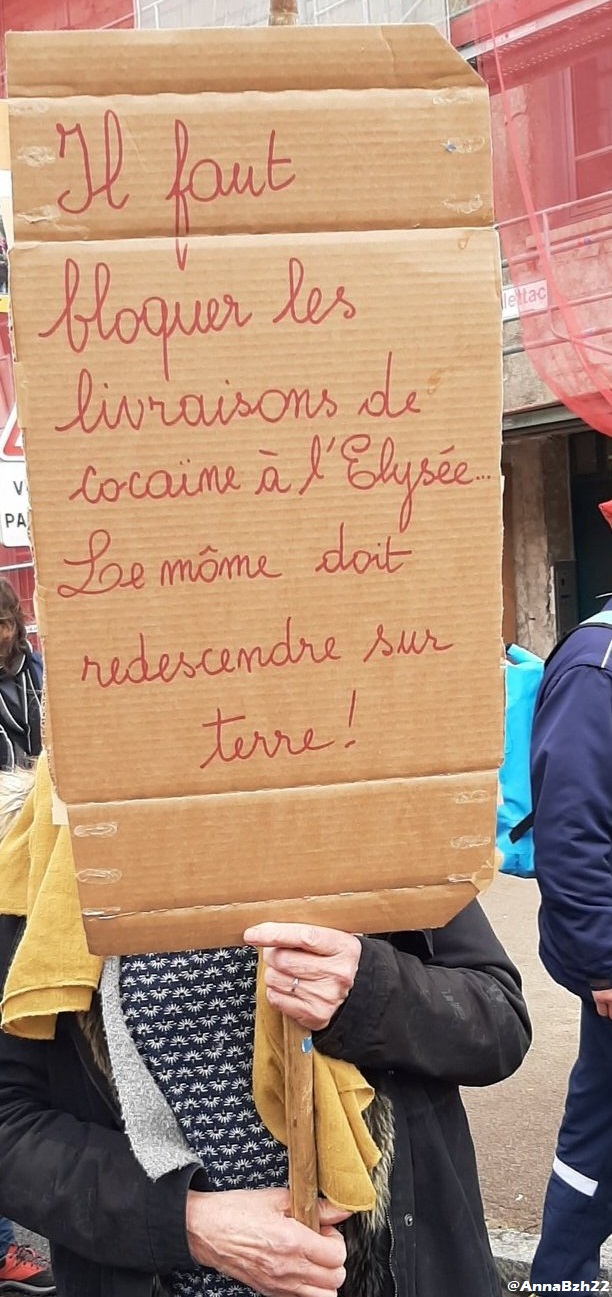 Il faut
bloquer les
livraisons de
cocaïne à l'Elysée...
Le môme doit
redescendre sur
terre !
@AnnaBzh22